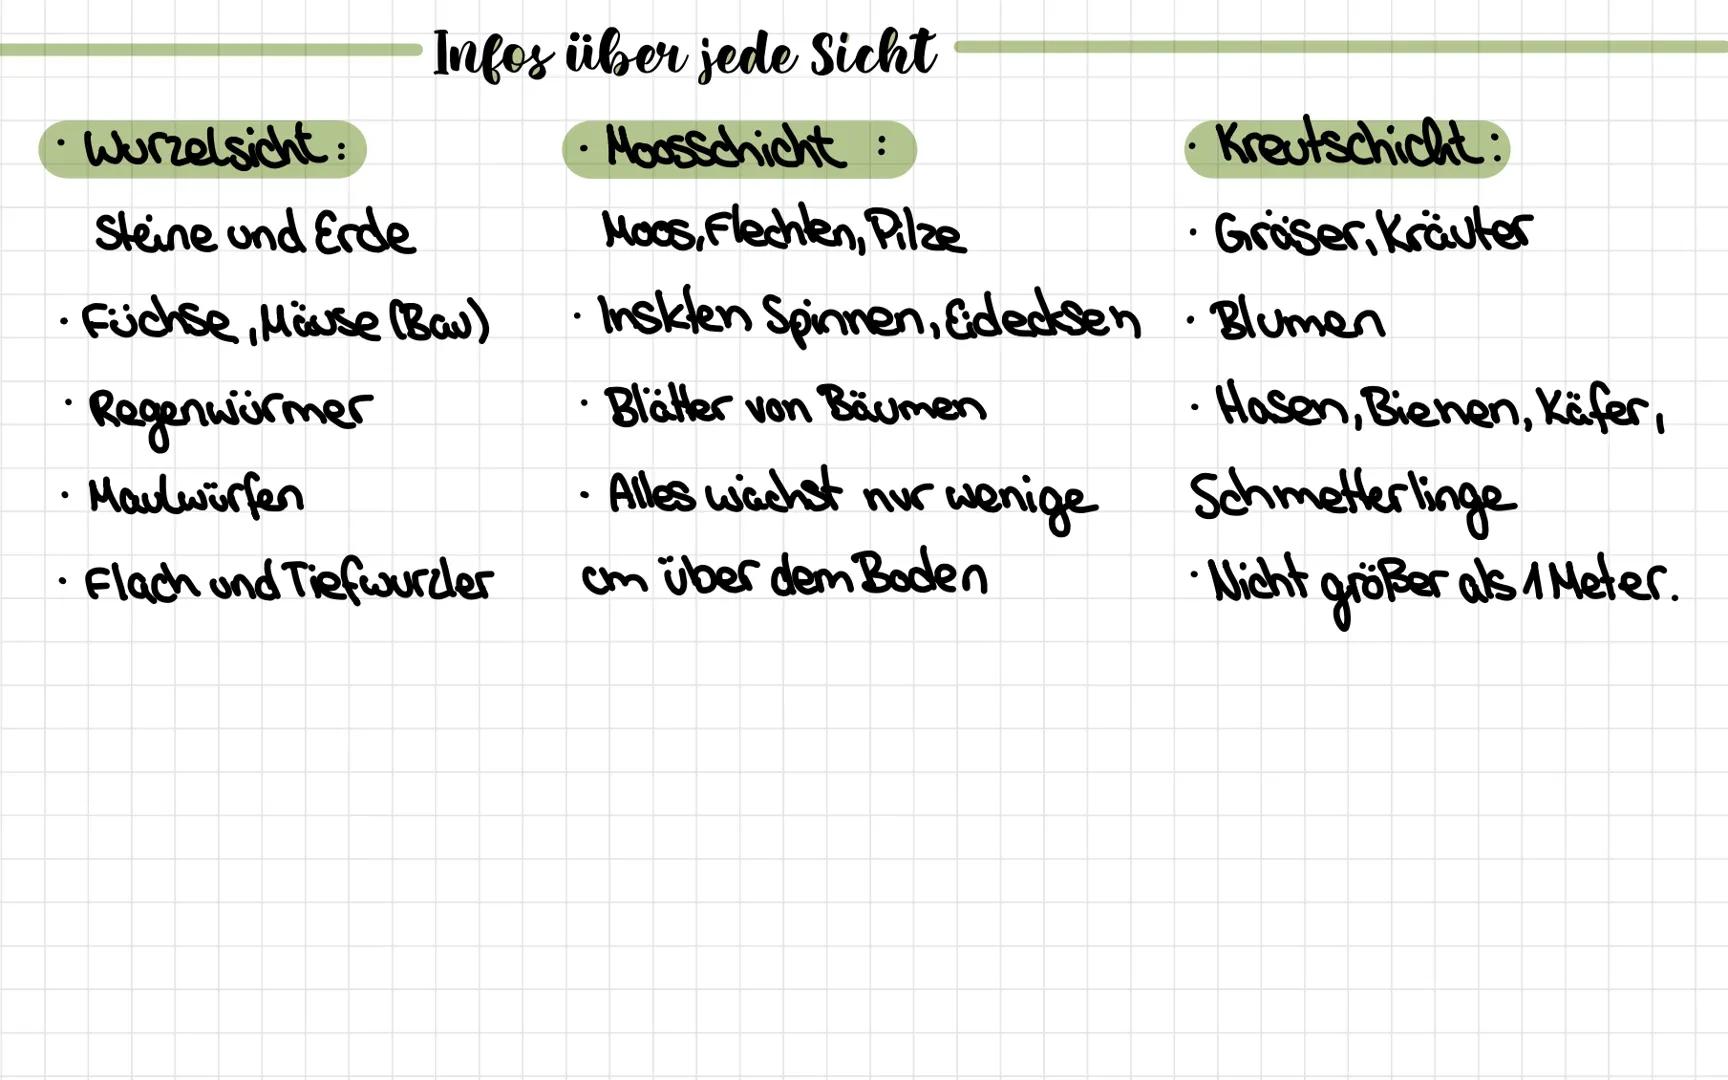 Infos über jede Sicht
· Wurzelsicht:
Steine und Erde
· Füchse, Mäuse (Bau)
· Regenwürmer
· Maulwürfen
· Flach und Tiefwurzler
· Moosschicht :
Moos, Flechten, Pilze
· Inskten Spinnen, Eidecksen
· Blätter von Bäumen
· Alles wächst nur wenige
cm über dem Boden
· Kreutschicht:
· Gräser, Kräuter
· Blumen
· Hasen, Bienen, Käfer,
Schmetterlinge
· Nicht größer als 1 Meter.